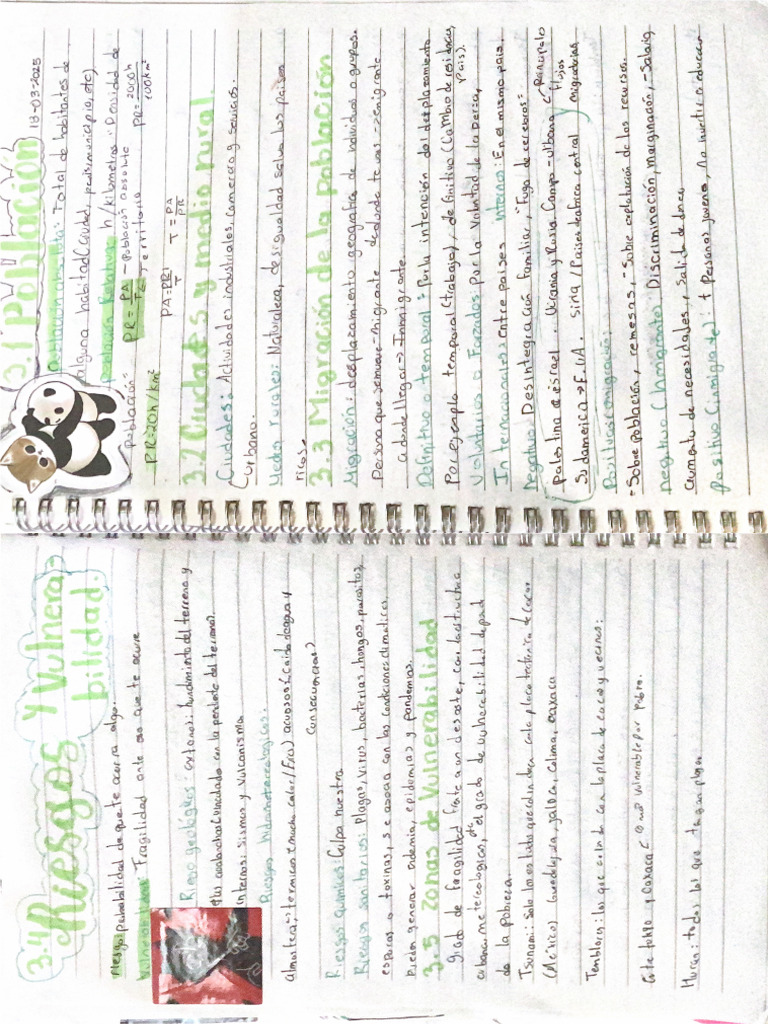 3.1 Población 18-03-2025
Población absoluta: Total de habitantes de
alguna habitad (ciudad, país, municipio, etc).
Población Relativa h/kilometros: Densidad de
población= PR = PA - Población absoluta PR = 2000h
T Territorio 100km²
PR=20h/km² PA=PR·T T = PA
PR
3.2 Ciudades y medio rural.
Ciudades: Actividades industriales, comercio y servicios.
(urbano.
Medios rurales: Naturaleza, desigualdad salvo los países
ricos.
3.3 Migración de la población
Migración: desplazamiento geografico de individuos o grupos.
Persona que se mueve → migrante de donde te vas → emigrante
a donde llegar → Inmigrante
Definitivo o temporal: Por la intención del desplazamiento
Por ejemplo temporal (trabajo), definitivo (Cambio de residencia,
país).
Voluntarios o Forzados por la Voluntad de la Persa,
Internacionales: Entre países internos: En el mismo país.
Negativo Desintegración Familiar, "Fuga de cerebros"
Palestina e israel. Ucrania y Rusia Campo-Urbano < Principales
flujos
Sudamerica → E.U.A. Siria / Paises de africa central migratorios
Positivo (emigración):
- Sobre población, remesas, - Sobre explotación de los recursos.
Negativo (Inmigrante) Discriminación, marginación, - Salario,
aumento de necesidades, Salida de dinero
Positivo (inmigrante): + Personas jovenes, No invertir a educación
3.4 Riesgos y Vulnera-
bilidad.
Riesgo: probabilidad de que te ocurra algo.
Vulnerabilidad: Fragilidad ante eso que te ocurre
Riesgo geológicos: externos: hundimiento del terreno y
flus avalanchas (vinculado con la pendiente del terreno).
internos: Sismos y Vulcanismo
Riesgos hidrometeorologicos:
Atmosfera, termicos (mucho calor/frio) acuosos (Caída de agua y
consecuencias)
Riesgos químicos: Culpa nuestra
Riesgos sanitarios: Plagas, virus, bacterias, hongos, parasitos,
esporas o toxinas, se asocia con las condiciones climaticas
Pueden generar endemia, epidemias y pandemias.
3.5 Zonas de Vulnerabilidad
grado de fragilidad frente a un desastre, con la estructura
urbana, metereologicos, etc el grado de vulnerabilidad depende
de la pobreza.
Tsunami: Solo los estados que colindan con la placa tectonica de cocos
(México) Guadalajara, jalisco, Colima, oaxaca
Temblores: los que colindan con la placa de cocos y vecinos:
Este pukgo y oaxaca < o más vulnerable por Pobre.
Huracán: todos los que tengan playa